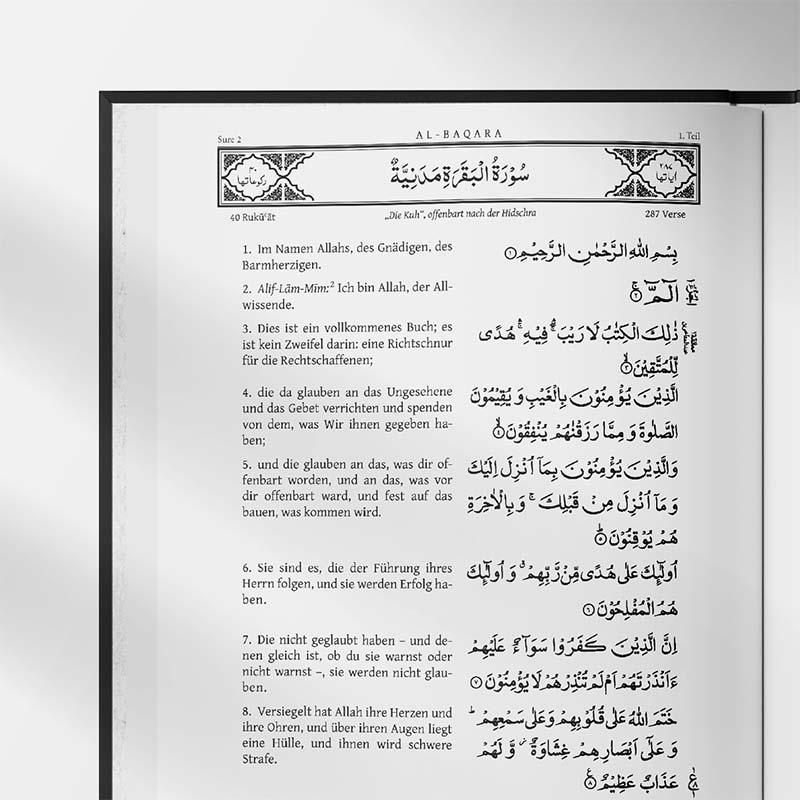 Sure 2
AL-BAQARA
1. Teil
٤٠
رکوعاتها
سُوْرَةُ الْبَقَرَةِ مَدَنِيَّةٌ
٢٨٧
اياتها
40 Rukūʿāt
„Die Kuh“, offenbart nach der Hidschra
287 Verse
1. Im Namen Allahs, des Gnädigen, des
Barmherzigen.
2. Alif-Lām-Mīm:² Ich bin Allah, der All-
wissende.
3. Dies ist ein vollkommenes Buch; es
ist kein Zweifel darin: eine Richtschnur
für die Rechtschaffenen;
4. die da glauben an das Ungesehene
und das Gebet verrichten und spenden
von dem, was Wir ihnen gegeben ha-
ben;
5. und die glauben an das, was dir of-
fenbart worden, und an das, was vor
dir offenbart ward, und fest auf das
bauen, was kommen wird.
6. Sie sind es, die der Führung ihres
Herrn folgen, und sie werden Erfolg ha-
ben.
7. Die nicht geglaubt haben – und de-
nen gleich ist, ob du sie warnst oder
nicht warnst –, sie werden nicht glau-
ben.
8. Versiegelt hat Allah ihre Herzen und
ihre Ohren, und über ihren Augen liegt
eine Hülle, und ihnen wird schwere
Strafe.
بِسْمِ اللّٰهِ الرَّحْمٰنِ الرَّحِيْمِ ۝١
الٓمّٓ ۚ ۝٢
ذٰلِكَ الْكِتٰبُ لَا رَيْبَ ۛۚ فِيْهِ ۛۚ هُدًى
لِّلْمُتَّقِيْنَ ۙ ۝٣
الَّذِيْنَ يُؤْمِنُوْنَ بِالْغَيْبِ وَ يُقِيْمُوْنَ
الصَّلٰوةَ وَ مِمَّا رَزَقْنٰهُمْ يُنْفِقُوْنَ ۙ ۝٤
وَالَّذِيْنَ يُؤْمِنُوْنَ بِمَآ اُنْزِلَ اِلَيْكَ
وَ مَآ اُنْزِلَ مِنْ قَبْلِكَ ۚ وَ بِالْاٰخِرَةِ
هُمْ يُوْقِنُوْنَ ؕ ۝٥
اُولٰٓئِكَ عَلٰى هُدًى مِّنْ رَّبِّهِمْ ۗ وَ اُولٰٓئِكَ
هُمُ الْمُفْلِحُوْنَ ۝٦
اِنَّ الَّذِيْنَ كَفَرُوْا سَوَآءٌ عَلَيْهِمْ
ءَاَنْذَرْتَهُمْ اَمْ لَمْ تُنْذِرْهُمْ لَا يُؤْمِنُوْنَ ۝٧
خَتَمَ اللّٰهُ عَلٰى قُلُوْبِهِمْ وَعَلٰى سَمْعِهِمْ ؕ
وَ عَلٰٓى اَبْصَارِهِمْ غِشَاوَةٌ ؗ وَّ لَهُمْ
عَذَابٌ عَظِيْمٌ ۝٨